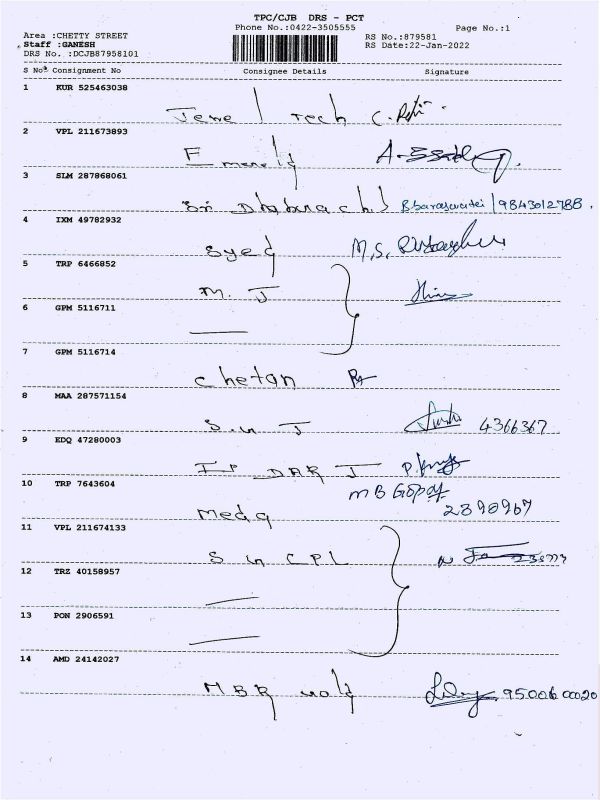 TPC/CJB DRS - PCT
Phone No.:0422-3505555
Page No.:1
Area :CHETTY STREET
RS No.:879581
Staff :GANESH
RS Date:22-Jan-2022
DRS No. :DCJB87958101
S No Consignment No Consignee Details Signature
1 KUR 525463038
Jewel Tech
2 VPL 211673893
Emerald
3 SLM 287868061
Sri 9843012788.
4 IXM 49782932
Syed M.S.
5 TRP 6466852
M. J
6 GPM 5116711
7 GPM 5116714
Chetan
8 MAA 287571154
S. J 4366367
9 EDQ 47280003
DAR J
10 TRP 7643604
MB Gopal
Meda 2390967
11 VPL 211674133
S CPL
12 TRZ 40158957
13 PON 2906591
14 AMD 24142027
MBR